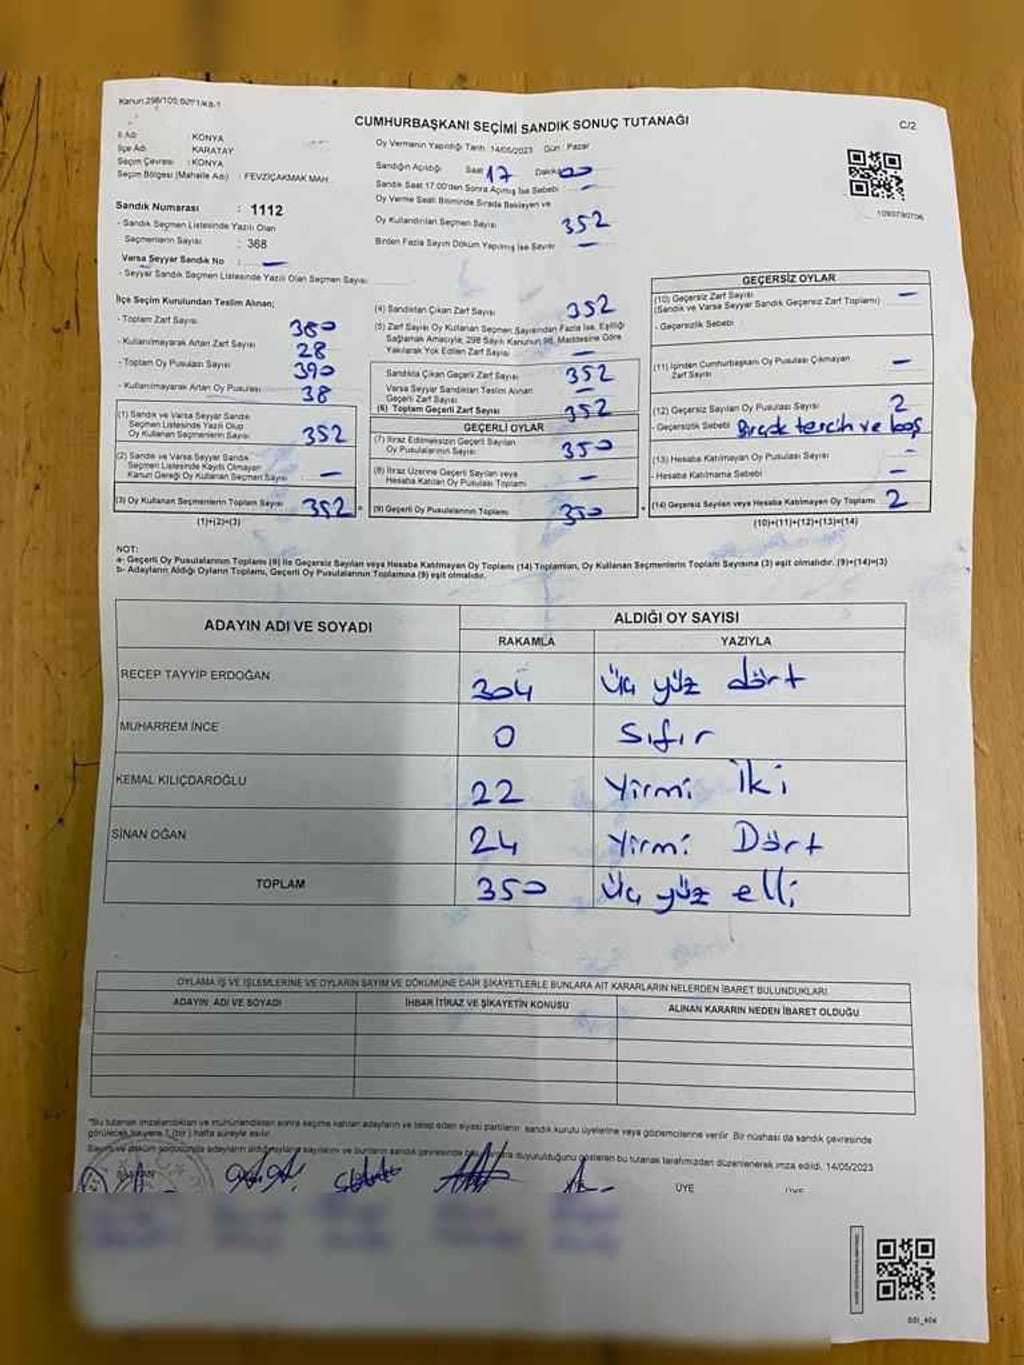 Kanun:298/105;
CUMHURBAŞKANI SEÇİMİ SANDIK SONUÇ TUTANAĞI
C/2
İl Adı : KONYA
İlçe Adı : KARATAY
Seçim Çevresi : KONYA
Seçim Bölgesi (Mahalle Adı) : FEVZİÇAKMAK MAH
Oy Vermenin Yapıldığı Tarih: 14/05/2023 Gün: Pazar
Sandığın Açıldığı Saat 17 Dakika 00
Sandık Saat 17.00'den Sonra Açılmış İse Sebebi –
Oy Verme Saati Bitiminde Sırada Bekleyen ve
Oy Kullandırılan Seçmen Sayısı 352
Birden Fazla Sayım Döküm Yapılmış İse Sayısı –
Sandık Numarası : 1112
- Sandık Seçmen Listesinde Yazılı Olan
Seçmenlerin Sayısı : 368
Varsa Seyyar Sandık No : –
- Seyyar Sandık Seçmen Listesinde Yazılı Olan Seçmen Sayısı
İlçe Seçim Kurulundan Teslim Alınan;
- Toplam Zarf Sayısı 380
- Kullanılmayarak Artan Zarf Sayısı 28
- Toplam Oy Pusulası Sayısı 390
- Kullanılmayarak Artan Oy Pusulası 38
(1) Sandık ve Varsa Seyyar Sandık
Seçmen Listesinde Yazılı Olup
Oy Kullanan Seçmenlerin Sayısı 352
(2) Sandık ve Varsa Seyyar Sandık
Seçmen Listesinde Kayıtlı Olmayan
Kanun Gereği Oy Kullanan Seçmen Sayısı –
(3) Oy Kullanan Seçmenlerin Toplam Sayısı 352
(1)+(2)=(3)
(4) Sandıktan Çıkan Zarf Sayısı 352
(5) Zarf Sayısı Oy Kullanan Seçmen Sayısından Fazla İse, Eşitliği
Sağlamak Amacıyla, 298 Sayılı Kanunun 98. Maddesine Göre
Yakılarak Yok Edilen Zarf Sayısı –
Sandıkta Çıkan Geçerli Zarf Sayısı 352
Varsa Seyyar Sandıktan Teslim Alınan
Geçerli Zarf Sayısı –
(6) Toplam Geçerli Zarf Sayısı 352
GEÇERLİ OYLAR
(7) İtiraz Edilmeksizin Geçerli Sayılan
Oy Pusulalarının Sayısı 350
(8) İtiraz Üzerine Geçerli Sayılan veya
Hesaba Katılan Oy Pusulası Toplamı –
(9) Geçerli Oy Pusulalarının Toplamı 350
GEÇERSİZ OYLAR
(10) Geçersiz Zarf Sayısı –
(Sandık ve Varsa Seyyar Sandık Geçersiz Zarf Toplamı)
- Geçersizlik Sebebi
(11) İçinden Cumhurbaşkanı Oy Pusulası Çıkmayan
Zarf Sayısı –
(12) Geçersiz Sayılan Oy Pusulası Sayısı 2
- Geçersizlik Sebebi Birçok tercih ve boş
(13) Hesaba Katılmayan Oy Pusulası Sayısı –
- Hesaba Katılmama Sebebi –
(14) Geçersiz Sayılan veya Hesaba Katılmayan Oy Toplamı 2
(10)+(11)+(12)+(13)=(14)
NOT:
a- Geçerli Oy Pusulalarının Toplamı (9) ile Geçersiz Sayılan veya Hesaba Katılmayan Oy Toplamı (14) Toplamları, Oy Kullanan Seçmenlerin Toplam Sayısına (3) eşit olmalıdır. (9)+(14)=(3)
b- Adayların Aldığı Oyların Toplamı, Geçerli Oy Pusulalarının Toplamına (9) eşit olmalıdır.
ADAYIN ADI VE SOYADI
ALDIĞI OY SAYISI
RAKAMLA YAZIYLA
RECEP TAYYİP ERDOĞAN 304 üç yüz dört
MUHARREM İNCE 0 Sıfır
KEMAL KILIÇDAROĞLU 22 Yirmi İki
SİNAN OĞAN 24 Yirmi Dört
TOPLAM 350 üç yüz elli
OYLAMA İŞ VE İŞLEMLERİNE VE OYLARIN SAYIM VE DÖKÜMÜNE DAİR ŞİKAYETLERLE BUNLARA AİT KARARLARIN NELERDEN İBARET BULUNDUKLARI
ADAYIN ADI VE SOYADI
İHBAR İTİRAZ VE ŞİKAYETİN KONUSU
ALINAN KARARIN NEDEN İBARET OLDUĞU
"Bu tutanak imzalandıktan ve mühürlendikten sonra seçime katılan adayların ve talep eden siyasi partilerin sandık kurulu üyelerine veya gözlemcilerine verilir. Bir nüshası da sandık çevresinde
görülecek bir yere 1 (bir) hafta süreyle asılır.
duyurulduğunu gösteren bu tutanak tarafımızdan düzenlenerek imza edildi. 14/05/2023
BAŞKAN
ÜYE ÜYE